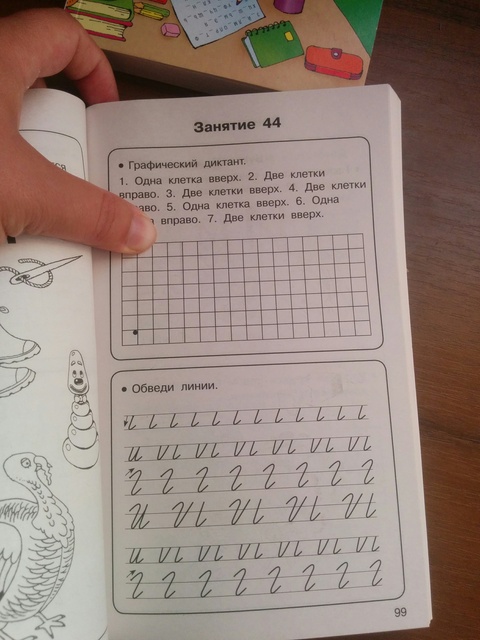 Занятие 44
• Графический диктант.
1. Одна клетка вверх. 2. Две клетки
вправо. 3. Две клетки вверх. 4. Две клетки
5. Одна клетка вверх. 6. Одна
вправо. 7. Две клетки вверх.
• Обведи линии.
99